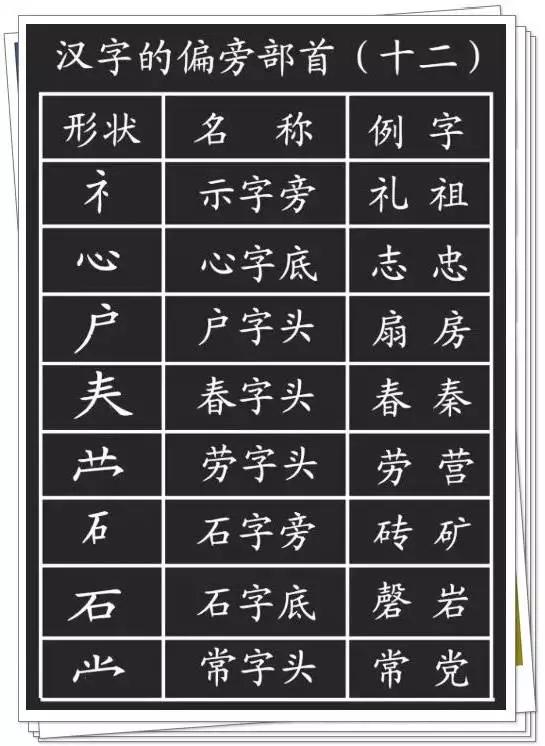 汉字的偏旁部首（十二）
形状 名称 例字
礻 示字旁 礼 祖
心 心字底 志 忠
户 户字头 扇 房
𡗗 春字头 春 秦
龷 劳字头 劳 营
石 石字旁 砖 矿
石 石字底 磬 岩
⺌冖 常字头 常 党